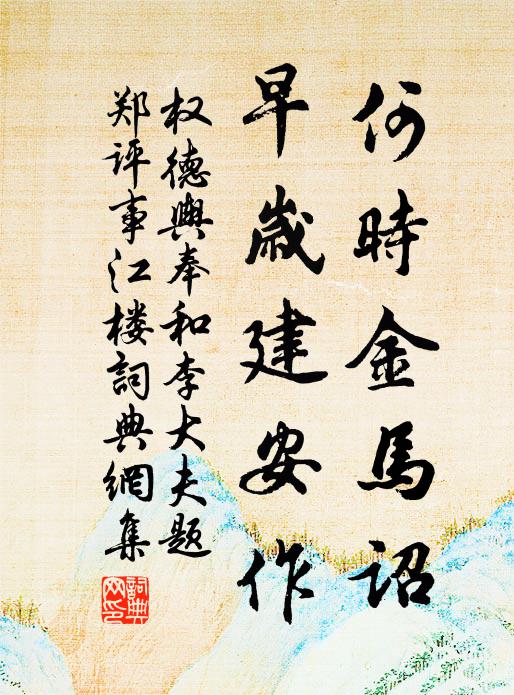 何時金馬詔
早歲建安作
权德輿奉和李大夫题
郑评事江楼詞典網集
詞典網印